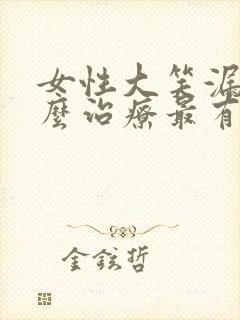 女性大笑漏
麼治療最有
金鉉哲